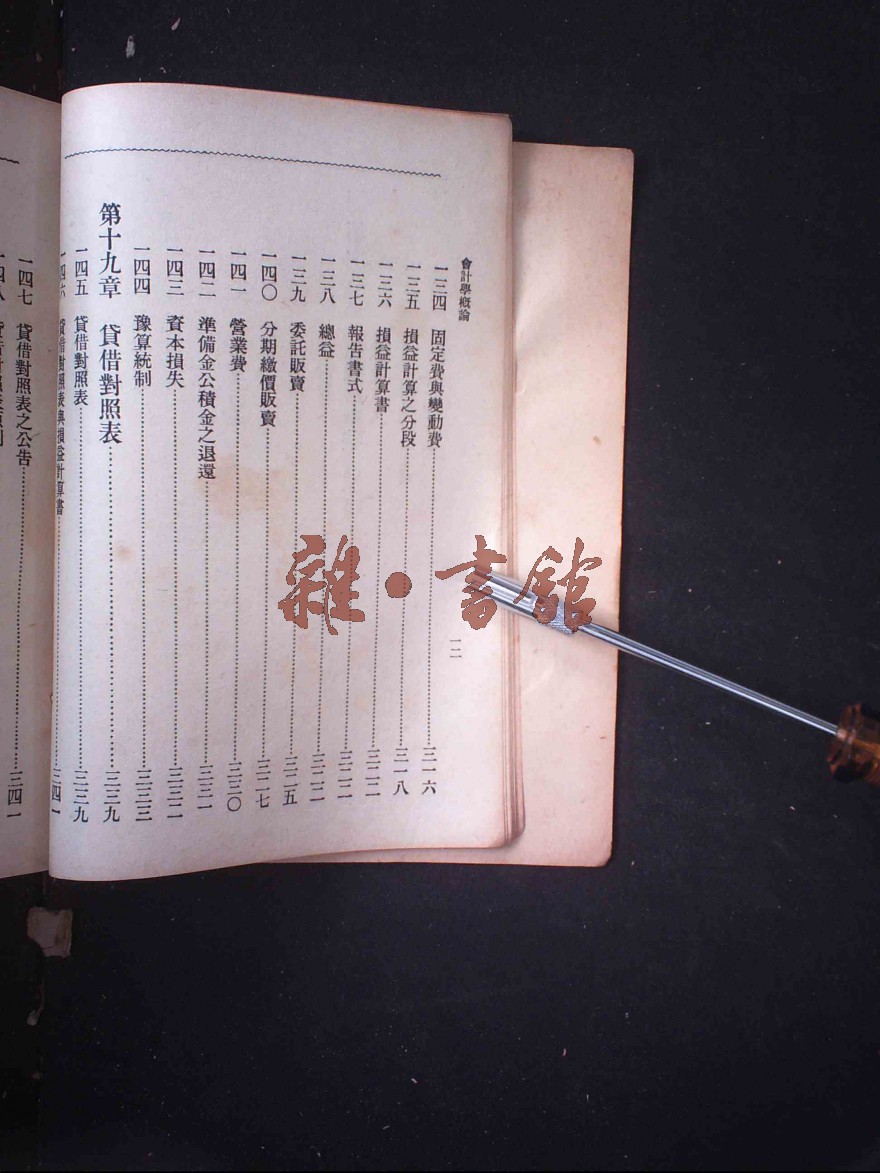 會計學概論
一二
一三四 固定費與變動費……三一六
一三五 損益計算之分段……三一八
一三六 損益計算書……三二二
一三七 報告書式……三二二
一三八 總益……三二二
一三九 委託販賣……三二五
一四〇 分期繳價販賣……三二七
一四一 營業費……三三〇
一四二 準備金公積金之退還……三三一
一四三 資本損失……三三二
一四四 豫算統制……三三三
第十九章 貸借對照表……三三九
一四五 貸借對照表……三三九
一四六 貸借對照表與損益計算書……三四一
一四七 貸借對照表之公告……三四一
一四八
雜·書館